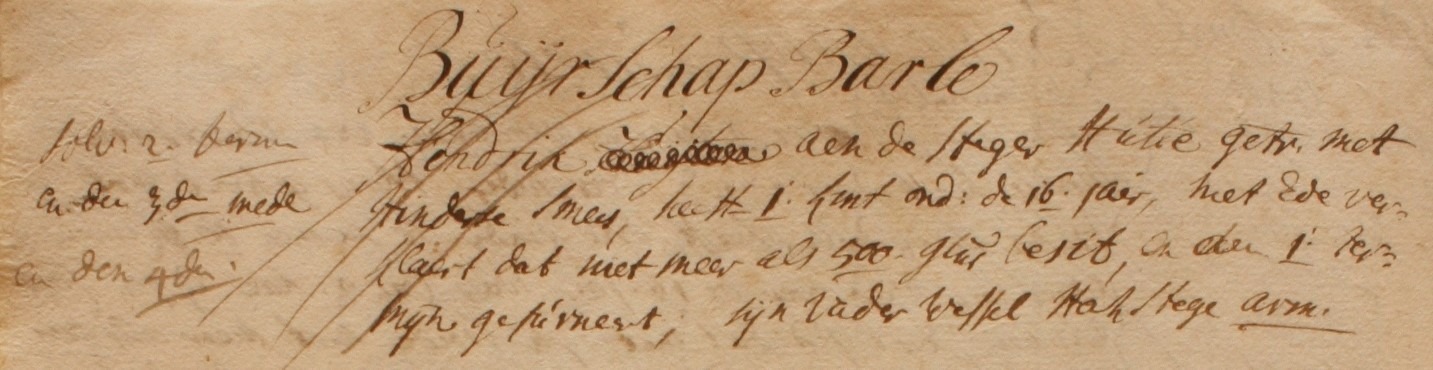 Buijrschap Barle
solv: 2. term
en den 3den mede
en den 4den
Hendrik aen de Steger Hutie getr. met
Smees, heeft 1. kint ond: de 16. jair, met Ede ver=
klaert dat niet meer als 500. glur besit, en den 1. ter=
mijn gefurneert, sijn Vader Wessel Hohstege arm.